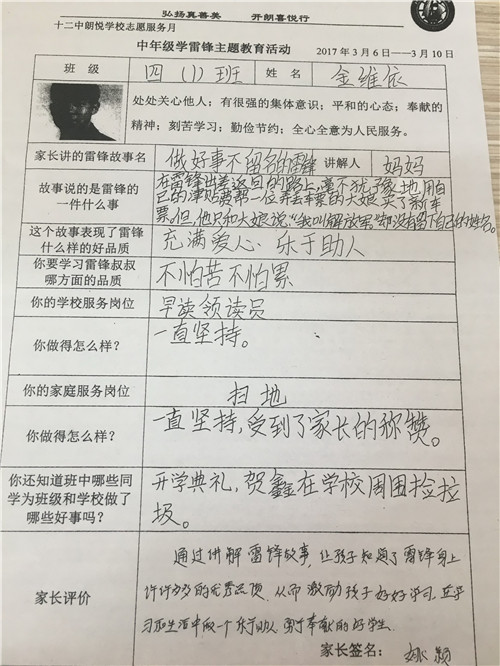 弘扬真善美 开朗喜悦行
十二中朗悦学校志愿服务月
中年级学雷锋主题教育活动 2017年3月6日——3月10日
班 级 四(1)班 姓 名 金维依
处处关心他人;有很强的集体意识;平和的心态;奉献的
精神;刻苦学习;勤俭节约;全心全意为人民服务。
家长讲的雷锋故事名 做好事不留名的雷锋 讲解人 妈妈
故事说的是雷锋的
一件什么事
在雷锋出差返回的路上,毫不犹豫地用自
己的津贴费第一位弄丢车票的大娘买了新车
票。但,他只和大娘说:“我叫解放军”却没有留下自己的姓名。
这个故事表现了雷锋
什么样的好品质
充满爱心、乐于助人
你要学习雷锋叔叔
哪方面的品质
不怕苦不怕累
你的学校服务岗位 早读领读员
你做得怎么样? 一直坚持。
你的家庭服务岗位 扫地
你做得怎么样? 一直坚持,受到了家长的称赞。
你还知道班中哪些同
学为班级和学校做了
哪些好事吗?
开学典礼,贺鑫在学校周围捡垃
圾。
家长评价
通过讲解雷锋故事,让孩子知道了雷锋身上
许许多多的优秀品质,从而激励孩子好好学习,在学
习和生活中做一个乐于助人 勇于奉献的好学生.
家长签名: 颖